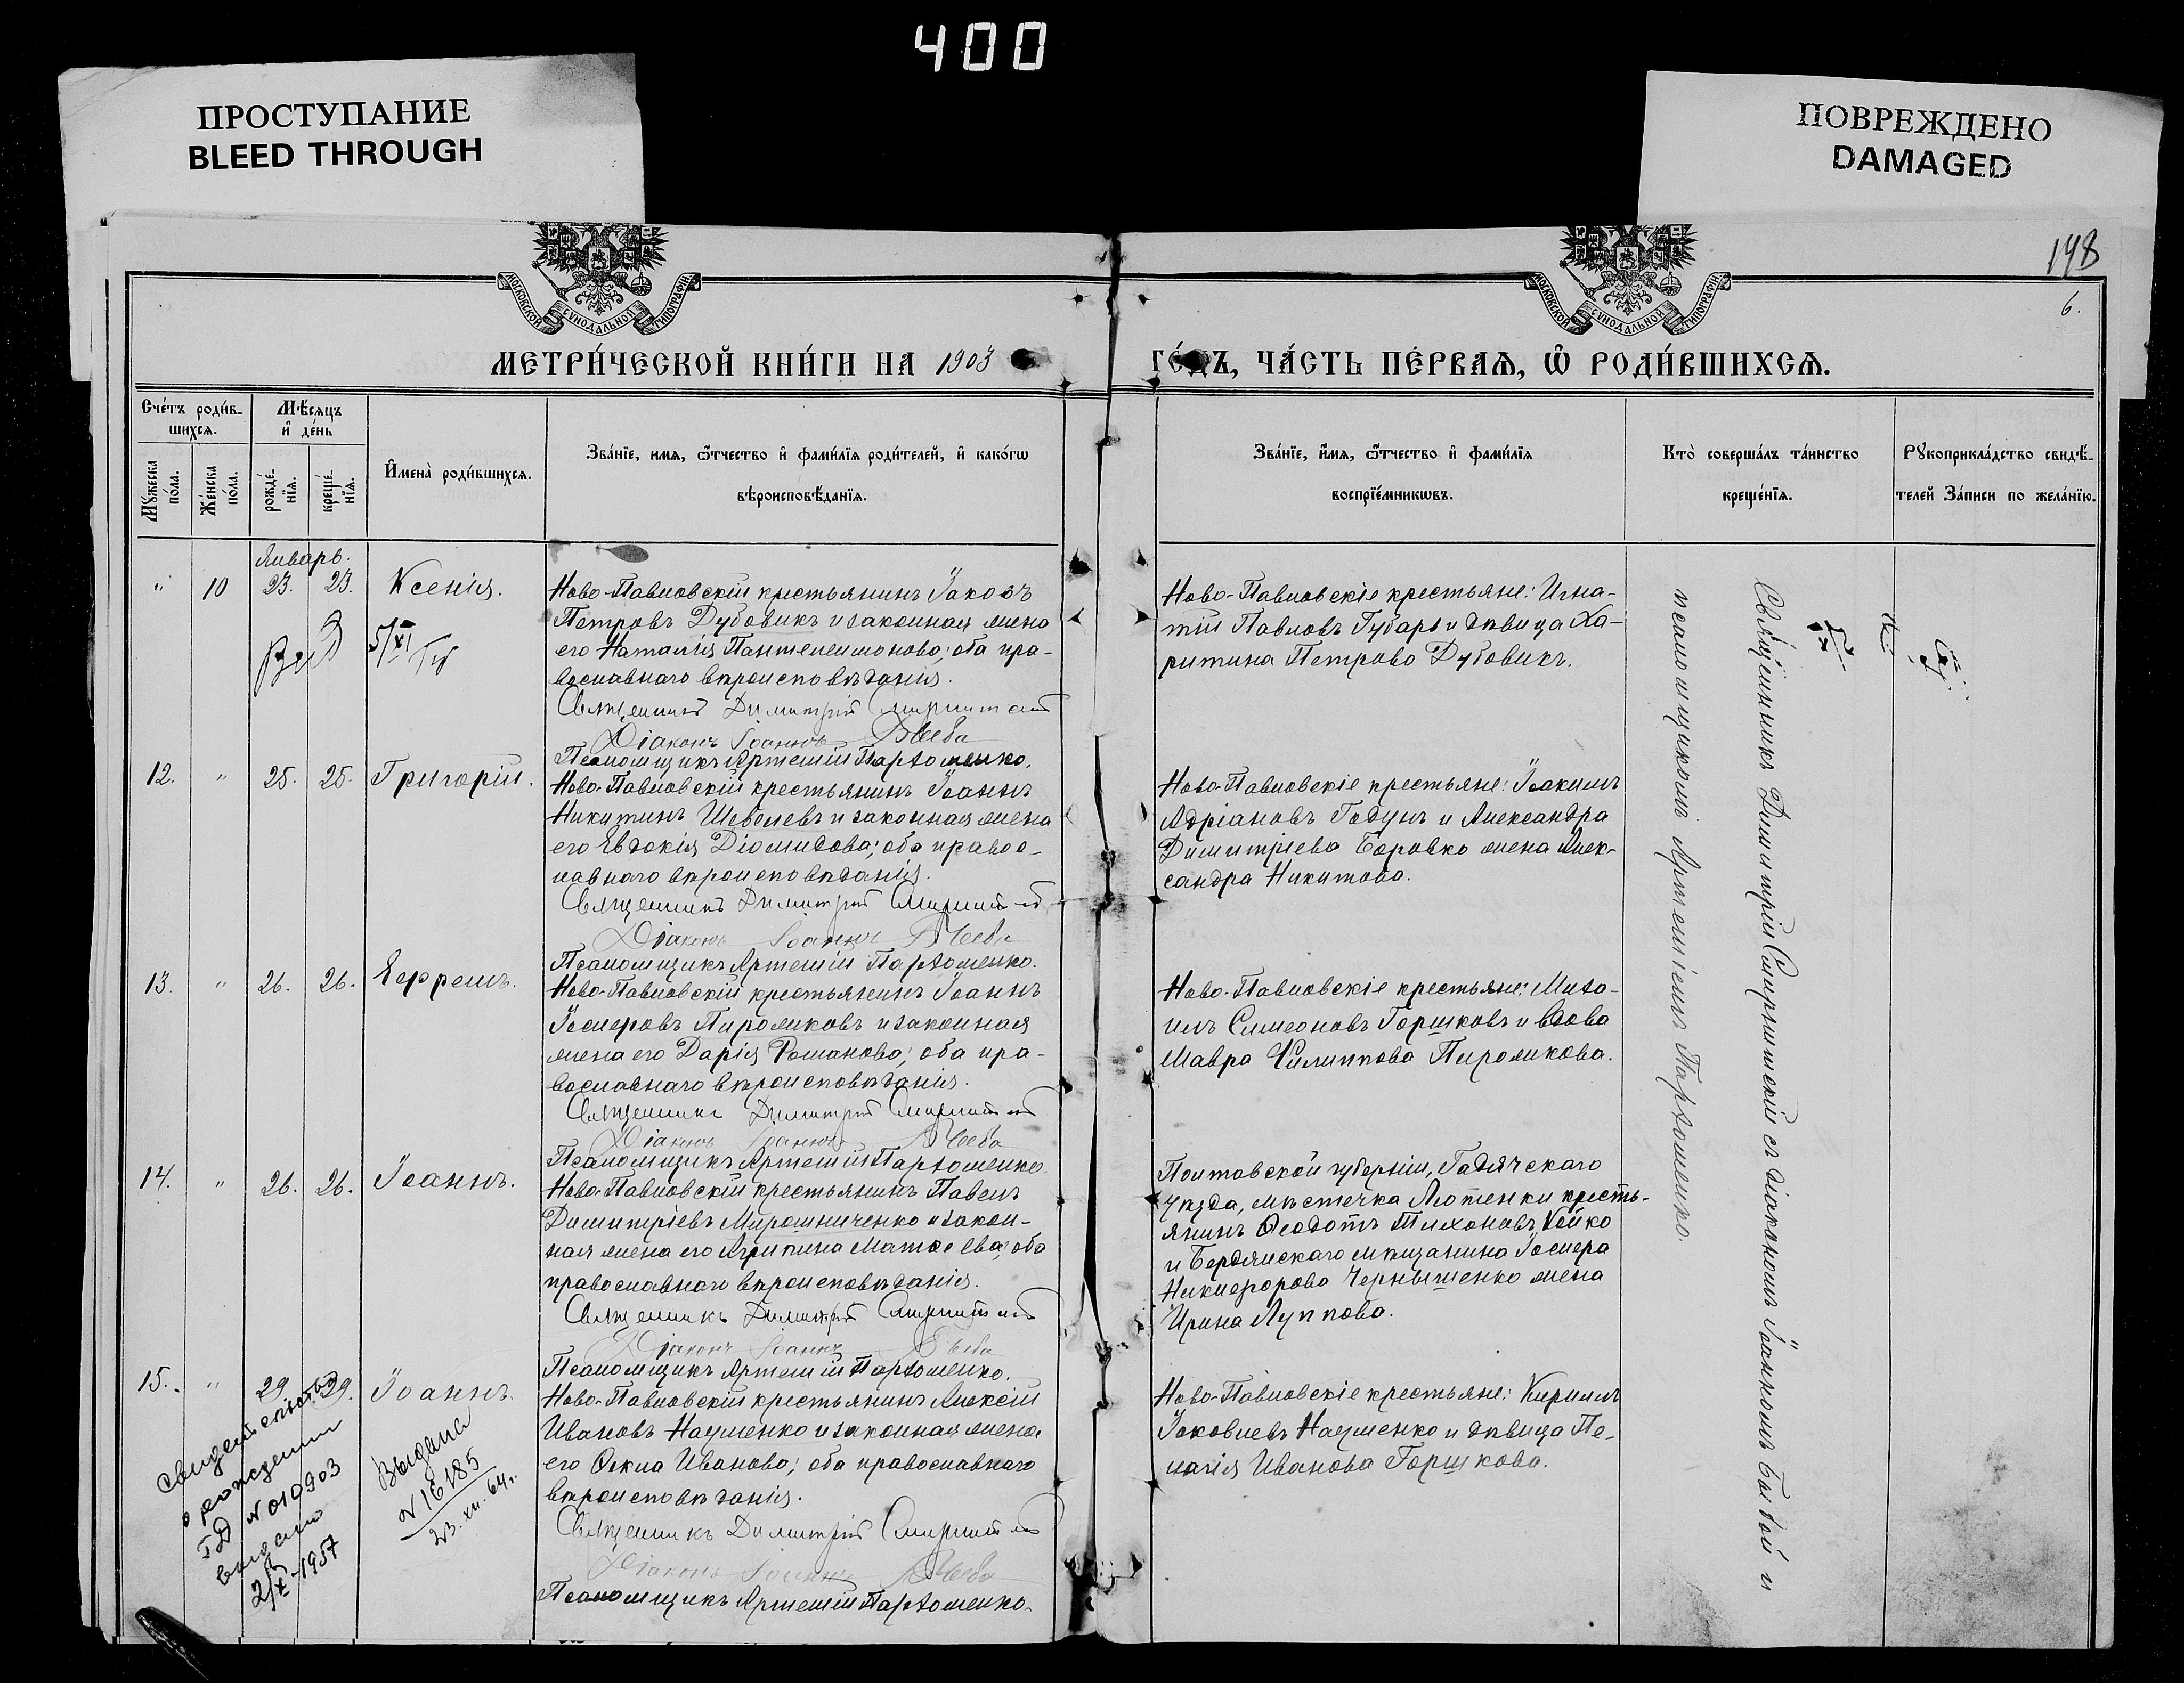 400
ПРОСТУПАНИЕ
BLEED THROUGH
ПОВРЕЖДЕНО
DAMAGED
198
6.
МОСКОВСКОЙ СѴНОДАЛЬНОЙ ТИПОГРАФІИ
МОСКОВСКОЙ СѴНОДАЛЬНОЙ ТИПОГРАФІИ
МЕТРИ́ЧЕСКОЙ КНИ́ГИ НА 1903
ГО́ДЪ, ЧА́СТЬ ПЕ́РВАѦ, Ѡ҆ РОДИ́ВШИХСѦ.
Сче́тъ роди́в-
шихсѧ.
Мѣ́сѧцъ
и҆ де́нь
Мꙋ́жеска
по́ла.
Же́нска
по́ла.
рожде́-
нїѧ.
креще́-
нїѧ.
И҆мена̀ роди́вшихсѧ.
Зва́нїе, имѧ, ѿчество и҆ фами́лїѧ роди́телей, и҆ како́гѡ
вѣроисповѣ́данїѧ.
Зва́нїе, и҆́мѧ, ѿчество и҆ фами́лїѧ
воспрїе́мникѡвъ.
Кто̀ соверша́лъ та́инство
креще́нїѧ.
Рꙋкоприкла́дство свидѣ́-
телей За́писи по жела́нїю.
Январь.
" 10 23. 23. Ксенія.
Ново-Павловскій крестьянинъ Іаковъ
Петровъ Дубовикъ и законная жена
его Наталія Пантелеимонова; оба пра-
вославнаго вѣроисповѣданія.
Священникъ Димитрій
Діаконъ Іоаннъ
Псаломщикъ Артемій Пархоменко.
Ново-Павловскіе крестьяне: Игна-
тій Павловъ Губарь и дѣвица Ха-
ритина Петрова Дубовикъ.
5/XI
12. " 25. 25. Григорій.
Ново-Павловскій крестьянинъ Іоаннъ
Никитинъ Шевелевъ и законная жена
его Евдокія Діомидова; оба правос-
лавнаго вѣроисповѣданія.
Священникъ Димитрій
Діаконъ Іоаннъ
Псаломщикъ Артемій Пархоменко.
Ново-Павловскіе крестьяне: Іоакимъ
Адріановъ Годунъ и Александра
Димитріева Боровко жена Алек-
сандра Никитова.
13. " 26. 26. Ефремъ.
Ново-Павловскій крестьянинъ Іоаннъ
Іосифовъ Пирожковъ и законная
жена его Дарія Романова; оба пра-
вославнаго вѣроисповѣданія.
Священникъ Димитрій
Діаконъ Іоаннъ
Псаломщикъ Артемій Пархоменко.
Ново-Павловскіе крестьяне: Миха-
илъ Симеоновъ Горшковъ и вдова
Мавра Филиппова Пирожкова.
14. " 26. 26. Іоаннъ.
Ново-Павловскій крестьянинъ Павелъ
Димитріевъ Мирошниченко и закон-
ная жена его Агрипина Матвеева; оба
православнаго вѣроисповѣданія.
Священникъ Димитрій
Діаконъ Іоаннъ
Псаломщикъ Артемій Пархоменко.
Полтавской губерніи, Гадячскаго
уѣзда, мѣстечка Лютенки кресть-
янинъ Ѳеодотъ Тихоновъ Койко
и Бердянскаго мѣщанина Іосифа
Никифорова Чернышенко жена
Ирина Луппова.
15. " 29. 29. Іоаннъ.
Ново-Павловскій крестьянинъ Алексій
Ивановъ Науменко и законная жена
его Ѳекла Иванова; оба православнаго
вѣроисповѣданія.
Священникъ Димитрій
Діаконъ Іоаннъ
Псаломщикъ Артемій Пархоменко.
Ново-Павловскіе крестьяне: Кириллъ
Іаковлевъ Науменко и дѣвица Пе-
лагія Иванова Горшкова.
свидетельство
о рождении
ГД № 010903
выдано
2/X-1957
Выдана
№ 16185
23.XII.64г.
Священникъ Димитрій съ діакономъ Іоанномъ и
псаломщикомъ Артеміемъ Пархоменко.